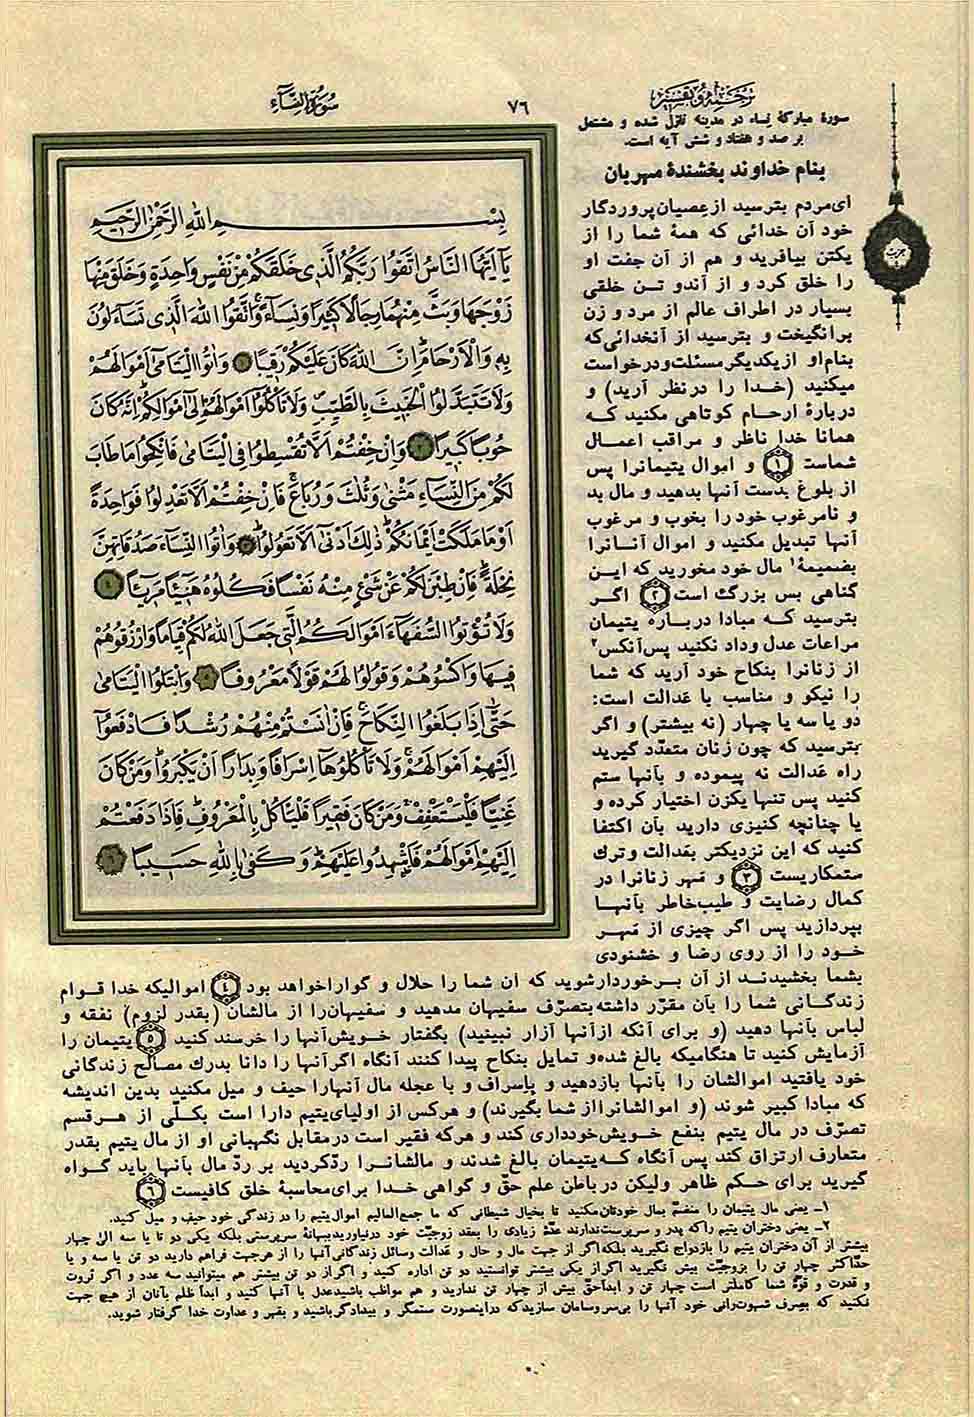 ترجمه و تفسیر
۷۶
سورة النسآء
سورهٔ مبارکهٔ نساء در مدینه نازل شده و مشتمل
بر صد و هفتاد و شش آیه است.
بنام خداوند بخشندهٔ مهربان
ای‌مردم بترسید از عصیان پروردگار
خود آن خدائی که همهٔ شما را از
یکتن بیافرید و هم از آن جفت او
را خلق کرد و از آندو تن خلقی
بسیار در اطراف عالم از مرد و زن
برانگیخت و بترسید از آنخدائی‌که
بنام‌او از یکدیگر مسئلت‌ودرخواست
میکنید (خدا را در نظر آرید) و
دربارهٔ ارحام کوتاهی مکنید که
همانا خدا ناظر و مراقب اعمال
شماست ۱ و اموال یتیمانرا پس
از بلوغ بدست آنها بدهید و مال بد
و نامرغوب خود را بخوب و مرغوب
آنها تبدیل مکنید و اموال آنانرا
بضمیمهٔ۱ مال خود مخورید که این
گناهی بس بزرگ است ۲ اگر
بترسید که مبادا دربارهٔ یتیمان
مراعات عدل وداد نکنید پس‌آنکس۲
از زنانرا بنکاح خود آرید که شما
را نیکو و مناسب با عدالت است:
دو یا سه یا چهار (نه بیشتر) و اگر
بترسید که چون زنان متعدّد گیرید
راه عدالت نه پیموده و بآنها ستم
کنید پس تنها یکزن اختیار کرده و
یا چنانچه کنیزی دارید بآن اکتفا
کنید که این نزدیکتر بعدالت وترک
ستمکاریست ۳ و مَهر زنانرا در
کمال رضایت و طیب‌خاطر بآنها
بپردازید پس اگر چیزی از مَهر
خود را از روی رضا و خشنودی
بِسْمِ اللّٰهِ الرَّحْمٰنِ الرَّحِیمِ
یَآ اَیُّهَا النَّاسُ اتَّقُوا رَبَّکُمُ الَّذِی خَلَقَکُمْ مِنْ نَفْسٍ وَاحِدَةٍ وَخَلَقَ مِنْهَا
زَوْجَهَا وَبَثَّ مِنْهُمَا رِجَالًا کَثِیرًا وَنِسَآءً وَاتَّقُوا اللّٰهَ الَّذِی تَسَآءَلُونَ
بِهِ وَالْاَرْحَامَ اِنَّ اللّٰهَ کَانَ عَلَیْکُمْ رَقِیبًا ۱ وَاٰتُوا الْیَتَامٰی اَمْوَالَهُمْ
وَلَا تَتَبَدَّلُوا الْخَبِیثَ بِالطَّیِّبِ وَلَا تَأْکُلُوا اَمْوَالَهُمْ اِلٰی اَمْوَالِکُمْ اِنَّهُ کَانَ
حُوبًا کَبِیرًا ۲ وَاِنْ خِفْتُمْ اَلَّا تُقْسِطُوا فِی الْیَتَامٰی فَانْکِحُوا مَا طَابَ
لَکُمْ مِنَ النِّسَآءِ مَثْنٰی وَثُلٰثَ وَرُبَاعَ فَاِنْ خِفْتُمْ اَلَّا تَعْدِلُوا فَوَاحِدَةً
اَوْ مَا مَلَکَتْ اَیْمَانُکُمْ ذٰلِکَ اَدْنٰی اَلَّا تَعُولُوا ۳ وَاٰتُوا النِّسَآءَ صَدُقَاتِهِنَّ
نِحْلَةً فَاِنْ طِبْنَ لَکُمْ عَنْ شَیْءٍ مِنْهُ نَفْسًا فَکُلُوهُ هَنِیٓئًا مَرِیٓئًا ۴
وَلَا تُؤْتُوا السُّفَهَآءَ اَمْوَالَکُمُ الَّتِی جَعَلَ اللّٰهُ لَکُمْ قِیَامًا وَارْزُقُوهُمْ
فِیهَا وَاکْسُوهُمْ وَقُولُوا لَهُمْ قَوْلًا مَعْرُوفًا ۵ وَابْتَلُوا الْیَتَامٰی
حَتّٰٓی اِذَا بَلَغُوا النِّکَاحَ فَاِنْ اٰنَسْتُمْ مِنْهُمْ رُشْدًا فَادْفَعُوٓا
اِلَیْهِمْ اَمْوَالَهُمْ وَلَا تَأْکُلُوهَآ اِسْرَافًا وَبِدَارًا اَنْ یَکْبَرُوا وَمَنْ کَانَ
غَنِیًّا فَلْیَسْتَعْفِفْ وَمَنْ کَانَ فَقِیرًا فَلْیَأْکُلْ بِالْمَعْرُوفِ فَاِذَا دَفَعْتُمْ
اِلَیْهِمْ اَمْوَالَهُمْ فَاَشْهِدُوا عَلَیْهِمْ وَکَفٰی بِاللّٰهِ حَسِیبًا ۶
بشما بخشیدند از آن برخوردارشوید که آن شما را حلال و گوارا خواهد بود ۴ اموالیکه خدا قوام
زندگانی شما را بآن مقرّر داشته بتصرّف سفیهان مدهید و سفیهان‌را از مالشان (بقدر لزوم) نفقه و
لباس بآنها دهید (و برای آنکه ازآنها آزار نبینید) بگفتار خوش‌آنها را خرسند کنید ۵ یتیمان را
آزمایش کنید تا هنگامیکه بالغ شده‌و تمایل بنکاح پیدا کنند آنگاه اگرآنها را دانا بدرک مصالح زندگانی
خود یافتید اموالشان را بآنها بازدهید و باسراف و با عجله مال آنهارا حیف و میل مکنید بدین اندیشه
که مبادا کبیر شوند (و اموالشانرا از شما بگیرند) و هرکس از اولیای‌یتیم دارا است بکلّی از هرقسم
تصرّف در مال یتیم بنفع خویش‌خودداری کند و هرکه فقیر است درمقابل نگهبانی او از مال یتیم بقدر
متعارف ارتزاق کند پس آنگاه که‌یتیمان بالغ شدند و مالشانرا ردّکردید بر ردّ مال بآنها باید گواه
گیرید برای حکم ظاهر ولیکن در باطن علم حقّ و گواهی خدا برای‌محاسبهٔ خلق کافیست ۶
۱ـ یعنی مال یتیمان را منضمّ بمال خودتان‌مکنید تا بخیال شیطانی که ما جمع‌المالیم اموال‌یتیم را در زندگی خود حیف و میل کنید.
۲ـ یعنی دختران یتیم راکه پدر و سرپرست‌ندارند عدّهٔ زیادی را بعقد زوجیّت خود درنیاورید ببهانهٔ سرپرستی بلکه یکی دو تا یا سه الی چهار
بیشتر از آن دختران یتیم را بازدواج نگیرید بلکه‌اگر از جهت مال و حال و عدالت وسائل زندگانی‌آنها را از هرجهت فراهم دارید دو تن یا سه و یا
حدّاکثر چهار تن را بزوجیّت بیش نگیرید اگراز یکی بیشتر توانستید دو تن اداره کنید و اگراز دو تن بیشتر هم میتوانید سه عدد و اگر ثروت
و قدرت و قوهٔ شما کاملتر است چهار تن و ابداًحقّ بیش از چهار تن ندارید و هم مواظب باشیدعدل با آنها کنید و ابداً ظلم بآنان از هیچ جهت
نکنید که بصرف شهوت‌رانی خود آنها را بی‌سروسامان سازیدکه دراینصورت ستمگر و بیدادگرباشید و بقهر و عداوت خدا گرفتار شوید.